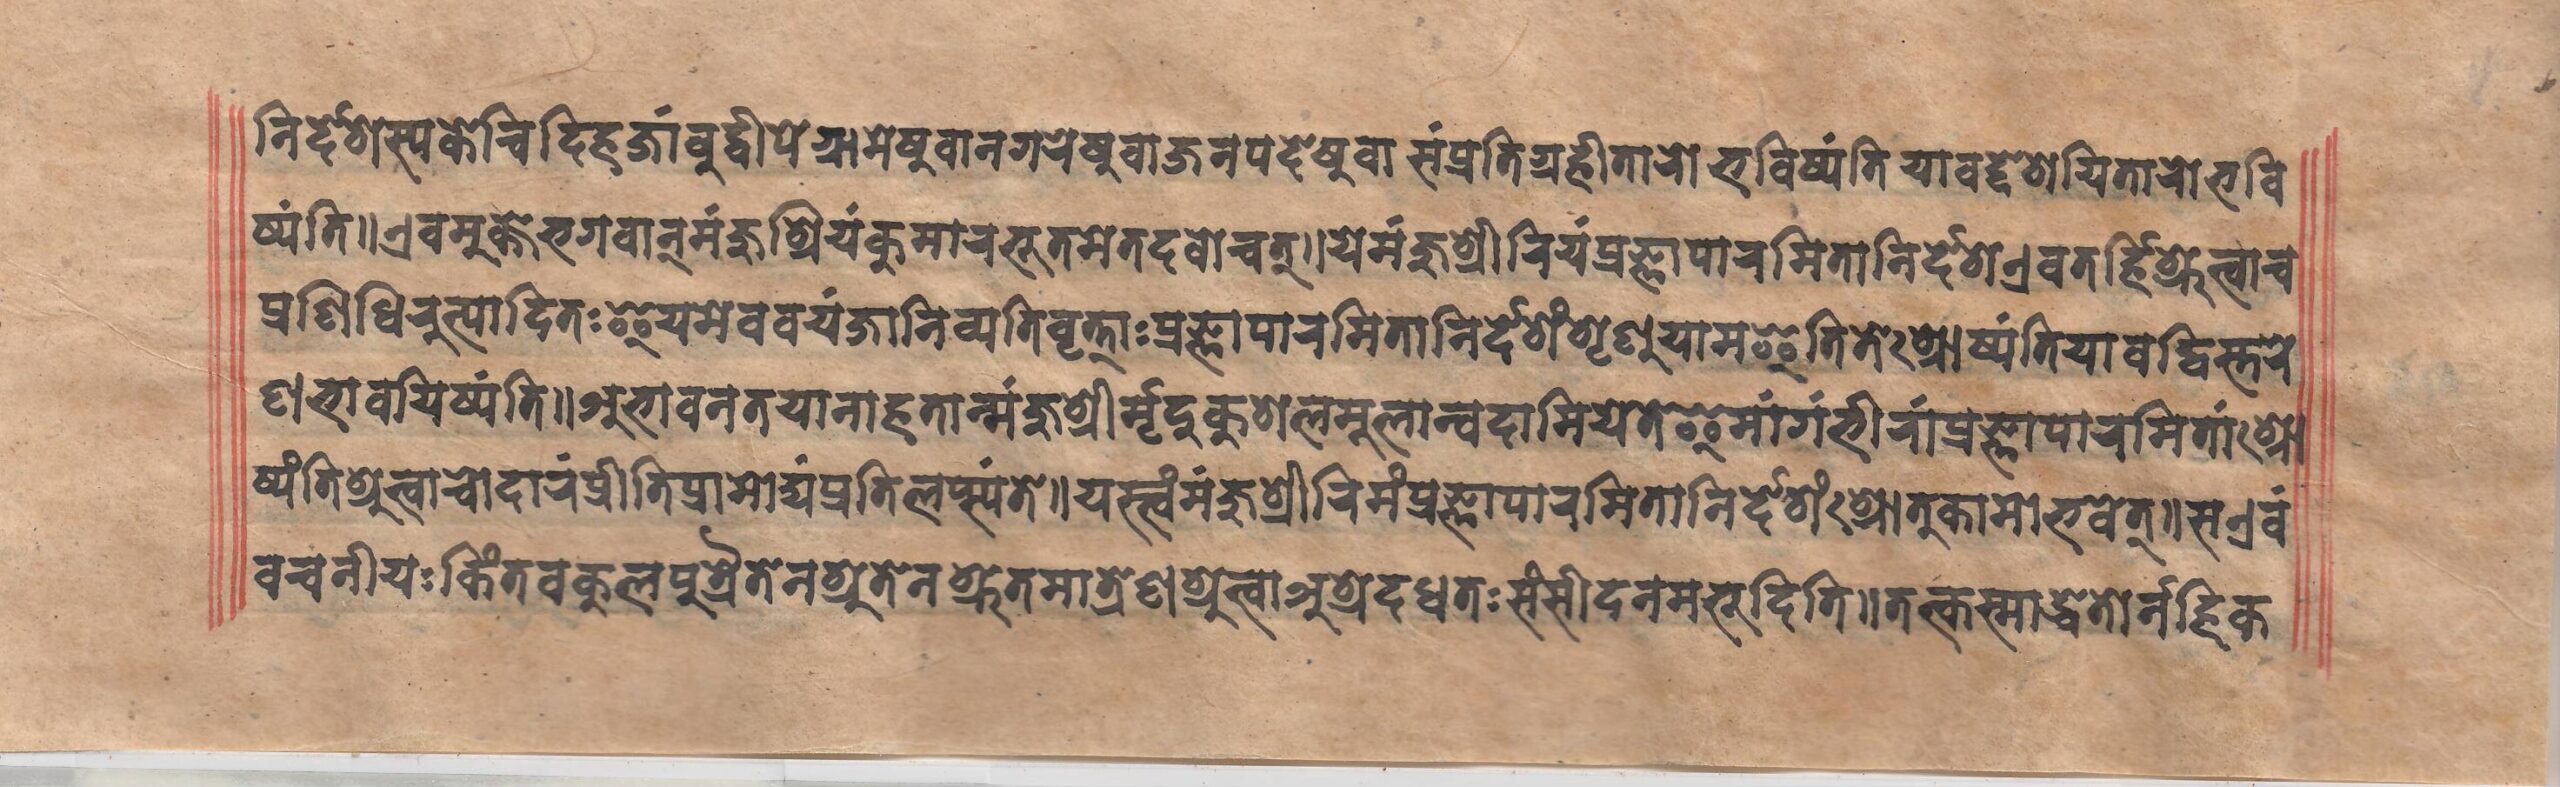 निर्देशस्यकेचिदिहजांबुद्वीपेग्रामेषुवानगरेषुवाजनपदेषुवा संप्रतिग्रहीतारो भविष्यंति यावद्देशयितारो भवि
ष्यंति॥एवमुक्तेभगवान्मंजुश्रियंकुमारभूतमेतदवोचत्॥येमंजुश्रीरियंप्रज्ञापारमितानिर्देशएवतर्हिश्रुत्वाच
प्रणिधिरुत्पादितःइयमेववयंजानिव्यतिवृत्ताःप्रज्ञापारमितानिर्देशंशृणुयामइतितेःश्रोष्यंतियावद्विस्तरे
णभावयिष्यंति॥अभावनतयानाहतान्मंजुश्रीर्मृदुकुशलमूलान्वदामियेतेइमांगंभीरांप्रज्ञापारमितांःश्रो
ष्यंतिश्रुत्वाचोदारंप्रीतिप्रामोद्यंप्रतिलप्स्यंते॥यस्त्वंमंजुश्रीरिमंप्रज्ञापारमितानिर्देशंःश्रोतुकामोभवेत्॥सएवं
वचनीयःकिंतवकुलपुत्रैतेनश्रुतेनश्रुतमात्रेणश्रुत्वाअश्रदधतःसंसीदनमभूदिति॥तत्कस्माद्धेतोर्नहिक